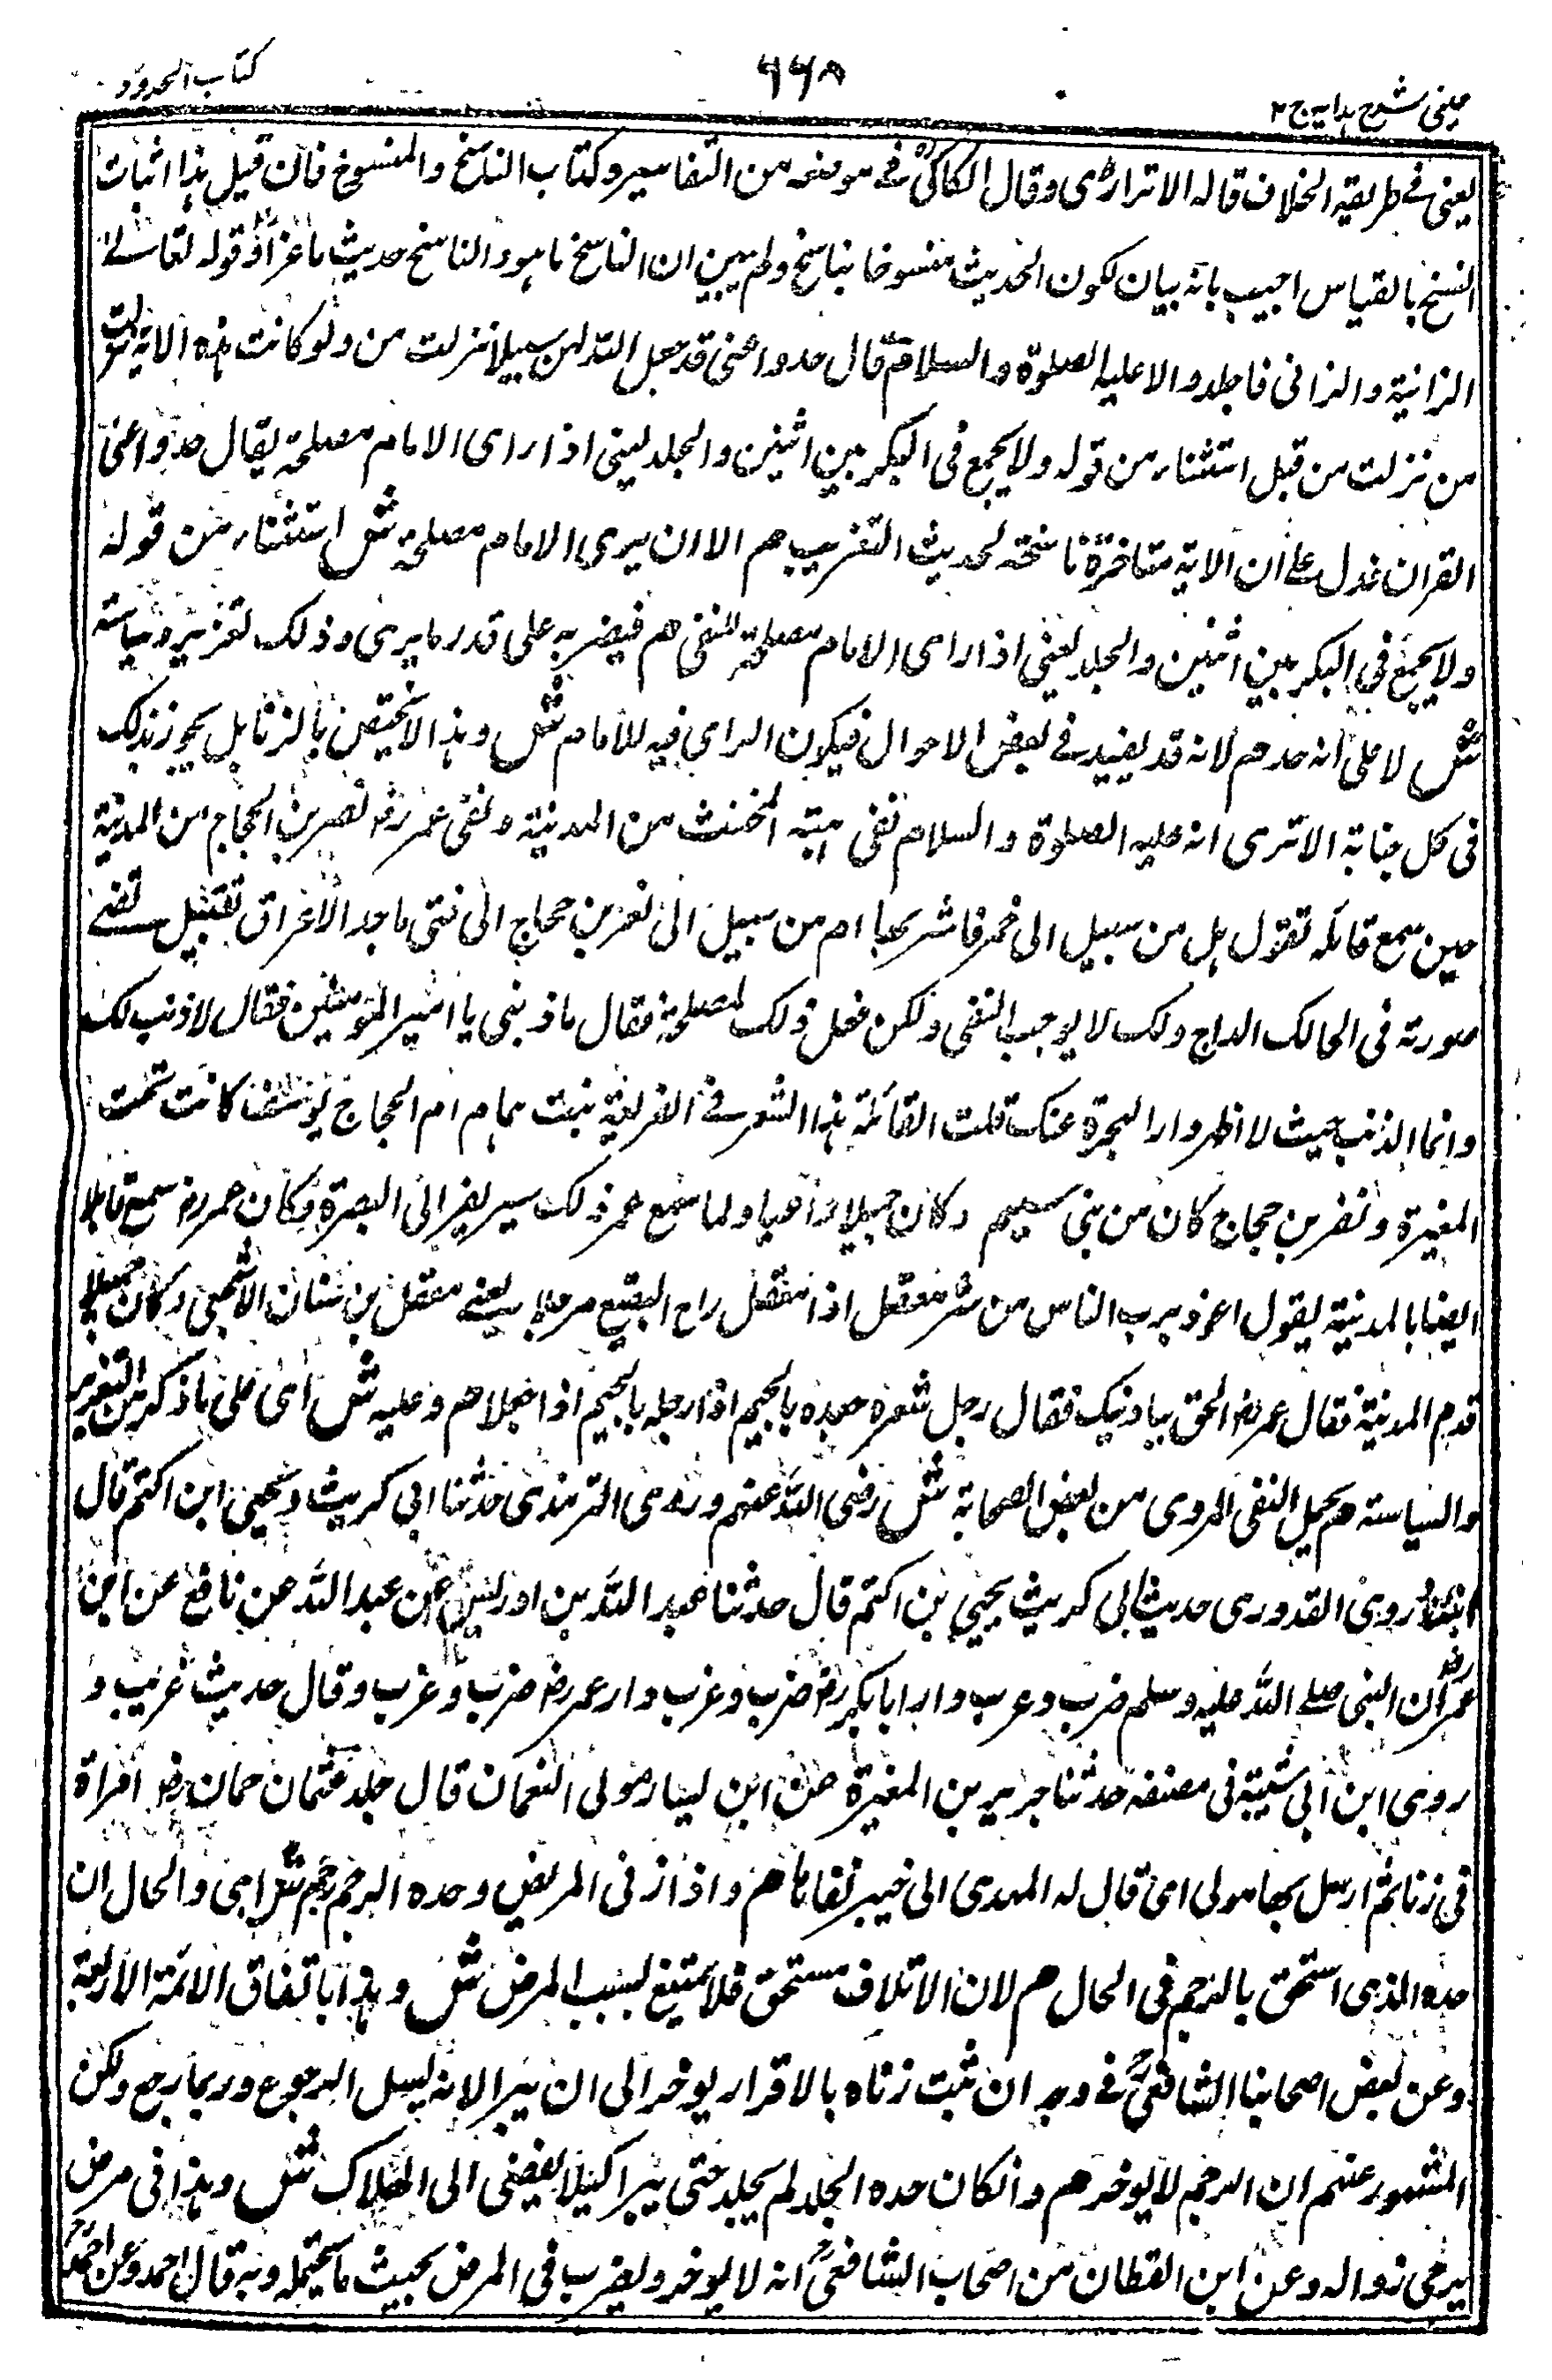 عینی شرح ہدایہ ج ۲
۶۶۸
کتاب الحدود
یعنی فے طریقۃ الخلاف قالہ الاترازی وقال الکاکی فے موضعہ من التفاسیر وکتاب الناسخ والمنسوخ فان قیل ہذا اثبات
النسخ بالقیاس اجیب بانہ بیان لکون الحدیث منسوخا بناسخ ولم یبین ان الناسخ ما ہو والناسخ حدیث ماعز او قولہ تعالے
الزانیۃ والزانی فاجلدوا لا علیہ الصلوۃ والسلام قال خذوا عنی قد جعل اللہ لہن سبیلا نزلت من ولو کانت ہذہ الآیۃ نزلت
من نزلت من قبل استثناء من قولہ ولا یجمع فی البکر بین اثنین والجلد یعنی اذا رای الامام مصلحۃ یقال خذوا عنی
القران فدل علے ان الآیۃ متاخرۃ ناسخۃ لحدیث التغریب ھم الا ان یری الامام مصلحۃ ش استثناء من قولہ
ولا یجمع فی البکر بین اثنین والجلد یعنی اذا رای الامام مصلحۃ النفی ھم فیضربہ علی قدر ما یری وذلک تعزیر وسیاستہ
ش لا علی انہ حد ھم لانہ قد یفید فے بعض الاحوال فیکون الرای فیہ للامام ش وہذا لا یختص بالزنا بل یجوز ذلک
فی کل جنایۃ الا تری انہ علیہ الصلوۃ والسلام نفی ہیتہ المخنث من المدینۃ ونفی عمر رض نصر بن الحجاج من المدینۃ
حین سمع قائلہ تقول ہل من سبیل الی خمر فاشربھا ام من سبیل الی نصر بن حجاج الی فتی ماجد الاعراق تقتبل تضئے
صورتہ فی الحالک الداج ولک لا یوجب النفی ولکن فعل ذلک لمصلحۃ فقال ما ذنبی یا امیر المومنین فقال لا ذنب لک
وانما الذنب حیث لا اظہر دار الہجرۃ عنک قلت القائلۃ ہذا الشعر فے الفریعۃ بنت ہمام ام الحجاج یوسف کانت تحت
المغیرۃ ونصر بن حجاج کان من بنی سلیم وکان جمیلا ولما سمع عمر ذلک سیر نصر الی البصرۃ وکان عمر رض سمع قائلا
ایضا بالمدینۃ یقول اعوذ برب الناس من شر معقل اذا معقل راح البقیع مرجلا یعنے معقل بن سنان الاشجعی وکان جمیلا
قدم المدینۃ فقال عمر رض الحق ببادیتک فقال رجل شعرہ جعدہ بالجیم اذا رجلہ بالجیم ھم وعلیہ ش ای علی ما ذکر من التعزیر
والسیاستہ ھم یحمل النفی المروی من بعض الصحابۃ ش رضی اللہ عنہم وروی الترمذی حدثنا ابی کریب ویحیی ابن اکثم قال
روی القدوری حدیث ابی کریب یحیی بن اکثم قال حدثنا عبد اللہ بن ادریس عن عبد اللہ عن نافع عن ابن
عمر ان النبی صلے اللہ علیہ وسلم ضرب وغرب وان ابا بکر رض ضرب وغرب وان عمر رض ضرب وغرب وقال حدیث غریب و
روی ابن ابی شیبۃ فی مصنفہ حدثنا جریر بن المغیرۃ عن ابن یسار مولی النعمان قال جلد عثمان رض امراۃ
فی زنا ثم ارسل بھا مولی ای قال لہ المہدی الی خیبر نفاھا ھم واذا زنی المریض وحدہ الرجم رجم ش ای والحال ان
حدہ الذی استحق بالرجم فی الحال ھم لان الاتلاف مستحق فلا یمتنع بسبب المرض ش وہذا باتفاق الائمۃ الاربعۃ
وعن بعض اصحابنا الشافعی فے وجہ ان ثبت زناہ بالاقرار یوخر الی ان یبرا لانہ یسل الرجوع وربما رجع ولکن
المشہور عنہم ان الرجم لا یوخر ھم وان کان حدہ الجلد لم یجلد حتی یبرا کیلا یفضی الی الھلاک ش وہذا فی مرض
یرجی زوالہ وعن ابن القطان من اصحاب الشافعی انہ لا یوخر ویضرب فی المرض بحیث ما یحتملہ وبہ قال احمد وعن احمد